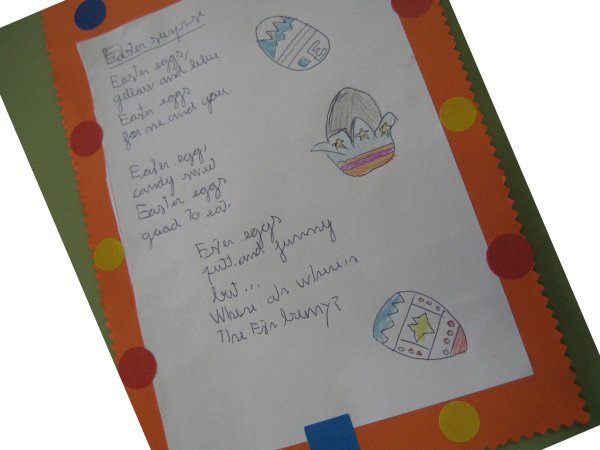 Easter surprise
Easter eggs,
yellow and blue
Easter eggs
for me and you.
Eater egg,
candy sweet
Easter eggs
good to eat
Ester eggs
and funny
but...
Where oh where is
The bunny?